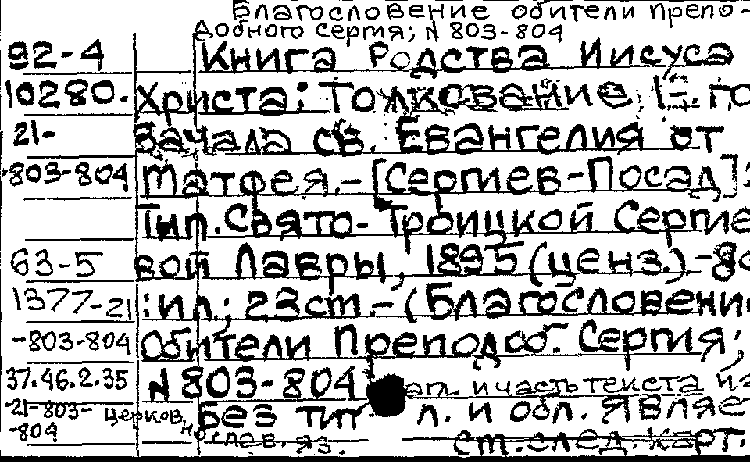 Благословение обители препо-
добного Сергия; N 803-804
92-4 Книга Родства Иисуса
10280. Христа: Толкование 1Е. го
21- Зачала св. Евангелия от
-803-804 Матфея.-[Сергиев-Посад]:
Тип. Свято-Троицкой Сергие
63-5 вой Лавры, 1895 (ценз.).-80
1377-21 :ил; 23см.-(Благословени
-803-804 Обители Преподоб. Сергия;
37.46.2.35 N 803-804 Зап. и часть текста на
-21-803- церков Без тит л. и обл. Являе
-804 нослав. яз. см.след.карт.